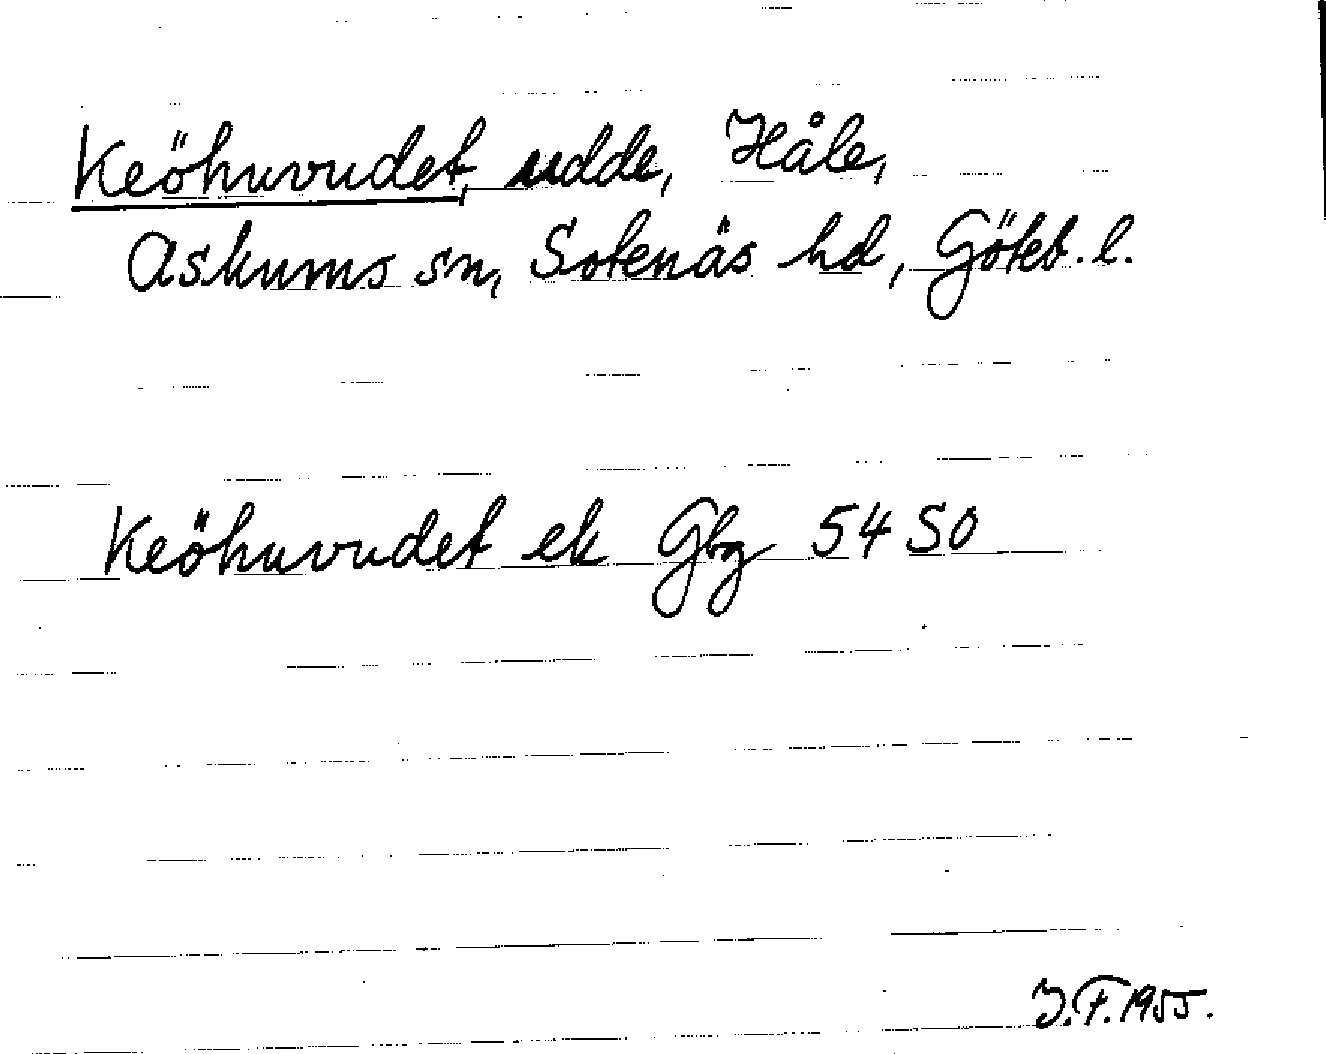 Keöhuvudet, udde, Håle,
Askums sn, Sotenäs hd, Göteb. l.
Keöhuvudet ek Gbg 54 SO
J.F. 1955.